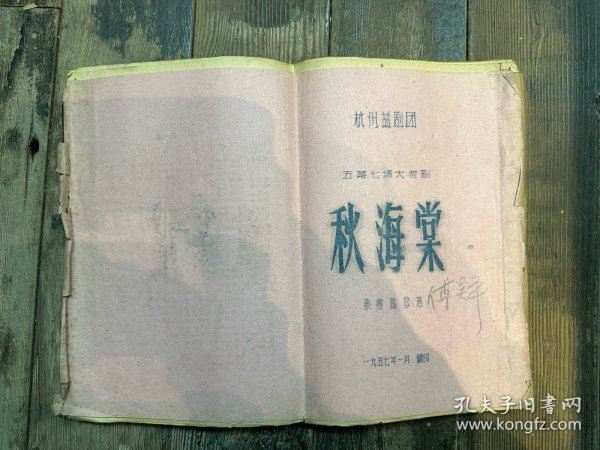 杭州越剧团
五幕七場大悲剧
秋海棠
秦瘦鷗原著
一九五七年一月 翻印
孔夫子旧书网
www.kongfz.com